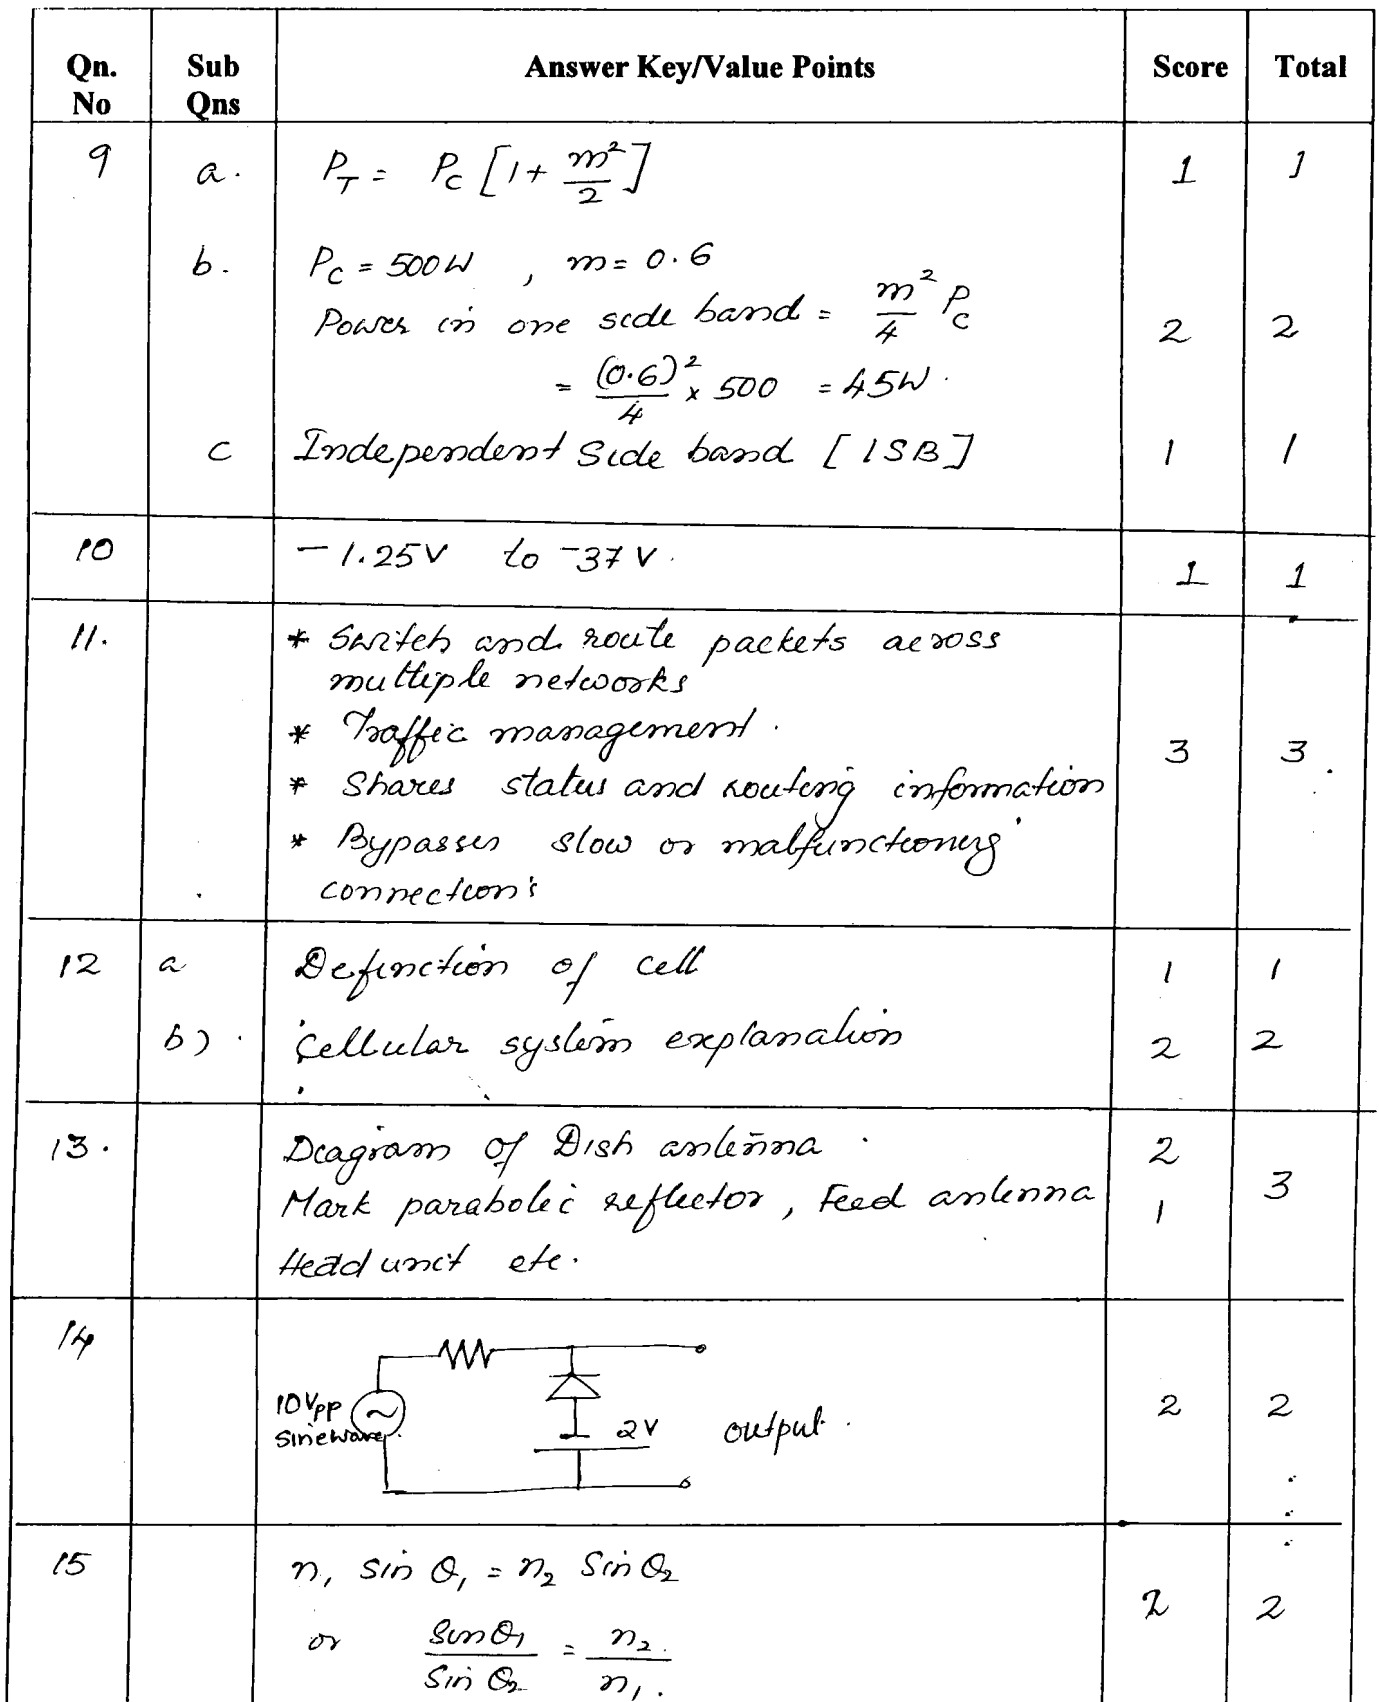 Qn. No Sub Qns Answer Key/Value Points Score Total
9 a. P_T = P_C [1 + m²/2] 1 1
b. P_C = 500W , m = 0.6
Power in one side band = m²/4 P_C 2 2
= (0.6)²/4 x 500 = 45W.
c Independent Side band [ISB] 1 1
10 -1.25V to -37V. 1 1
11. * Switch and route packets across
multiple networks
* Traffic management. 3 3
* Shares status and routing information
* Bypasses slow or malfunctioning
connections
12 a Definition of cell 1 1
b) Cellular system explanation 2 2
13. Diagram of Dish antenna. 2
Mark parabolic reflector, Feed antenna 1 3
Head unit etc.
14 10Vpp
sinewave. 2V output. 2 2
15 n₁ sin θ₁ = n₂ Sin θ₂
2 2
or Sinθ₁/Sin θ₂ = n₂/n₁.